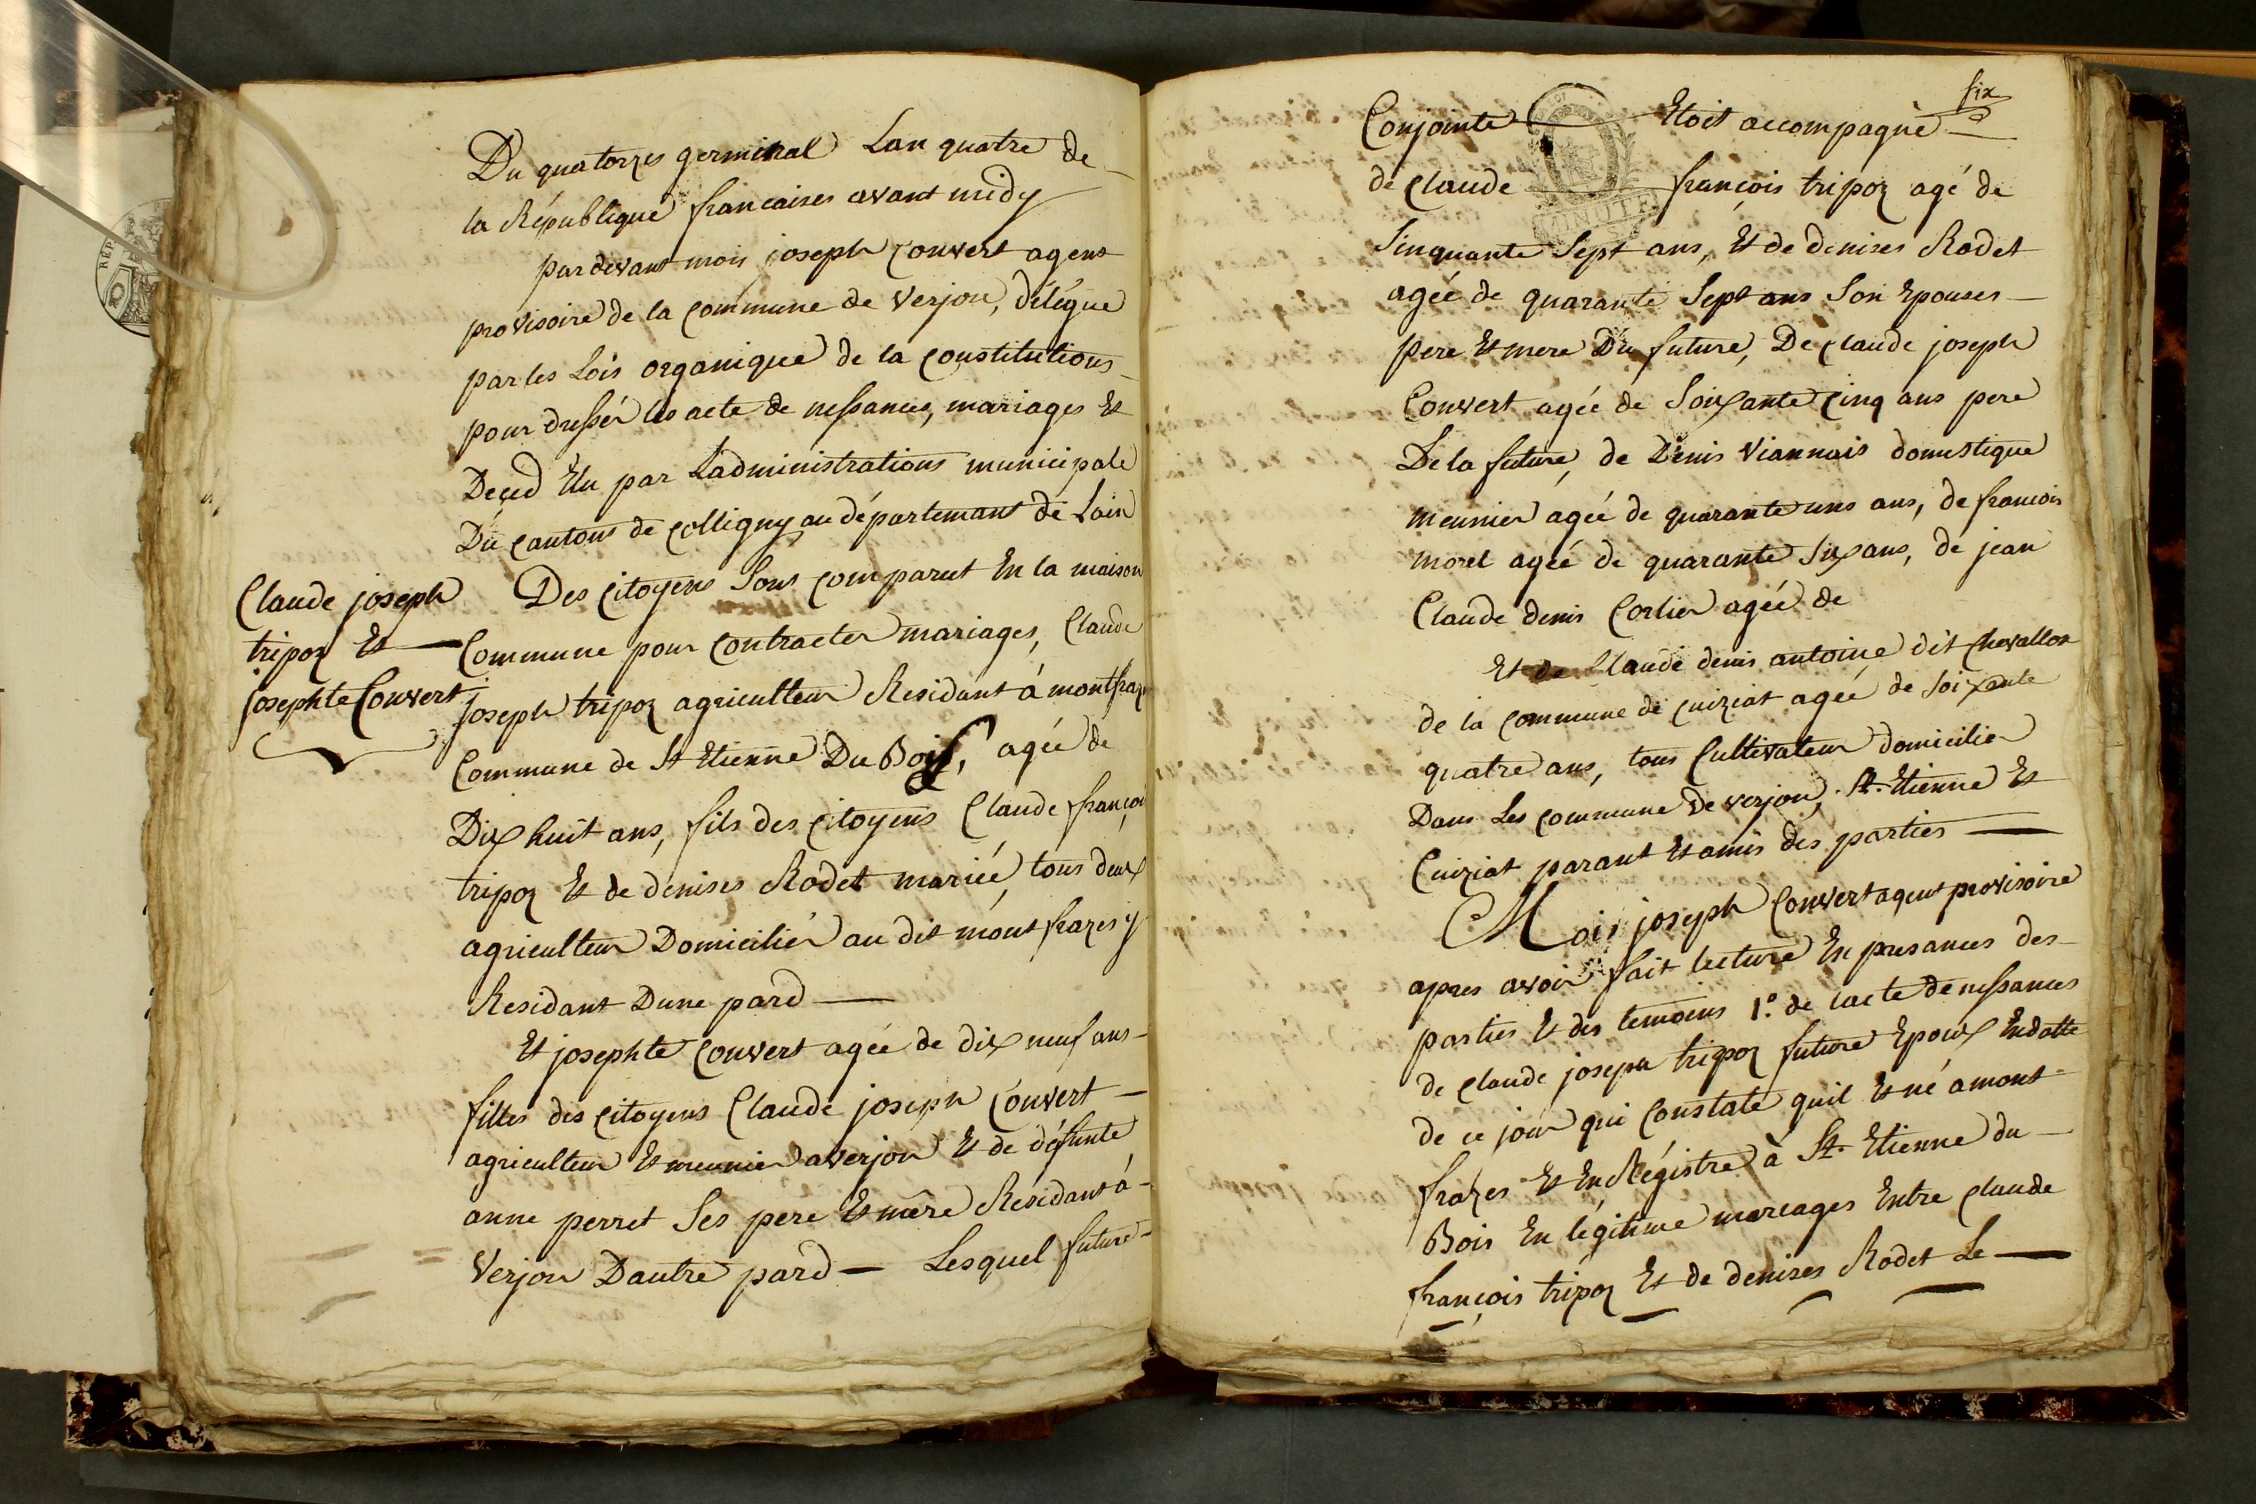 Du quatorzes germinal Lan quatre de
la République francaises avant midy
pardevant mois joseph Convert agent
provisoire de la commune de verjon, délégue
par les Lois organique de la constitutions
pour dressér les acte de nessances, mariages Et
Deced Elu par Ladministrations municipale
Du cantons de Colligny au départemant de Lain
Claude joseph
tripoz Et
josephte Convert
Des Citoyens Sons comparut En la maison
Commune pour contracter mariages, Claude
joseph tripoz agriculteur Residant á montfraz
Commune de St Etienne Du Bois, agée de
Dix huit ans, fils des citoyens Claude françoi
tripoz Et de denises Rodet mariée, tous deux
agriculteur Domicilier au dit mont frazes y
Residant Dune pard
Et josephte Convert agée de dix neuf ans
filles des Citoyens Claude joseph Convert
agriculteur Et meunier a verjon Et de défunte
anne perret Ses pere Et mére Residant á
Verjon Dautre pard — Lesquel future
six
Conjointe Etoit accompagné
de Claude françois tripoz agé de
Sinquante Sept ans, Et de denises Rodet
agée de quarante Sept ans Son Epouses
pere Et mere Du future, De Claude joseph
Convert agée de Soixante Cinq ans pere
De la future, de Denis Viannais domestique
meunier agée de quarante uns ans, de francois
morel agée de quarante Six ans, de jean
Claude denis Corlier agée de
Et de Claude denis antoine dit Chevallon
de la commune de cuiziat agée de soixante
quatre ans, tous Cultivateur domicilier
Dans Les commune De verjon, St. Etienne Et
Cuiziat parant Et amis des parties
Mois joseph Convert agent provisoire
apres avoir fait lecture En presances des
parties Et des temoins 1.º de lacte de nessances
de Claude joseph tripoz future Epoux En datte
de ce jour qui Constate quil Et né a mont
frazes Et En Régistre à St. Etienne du
Bois En légitime mareages Entre Claude
françois tripoz Et de denises Rodet Le